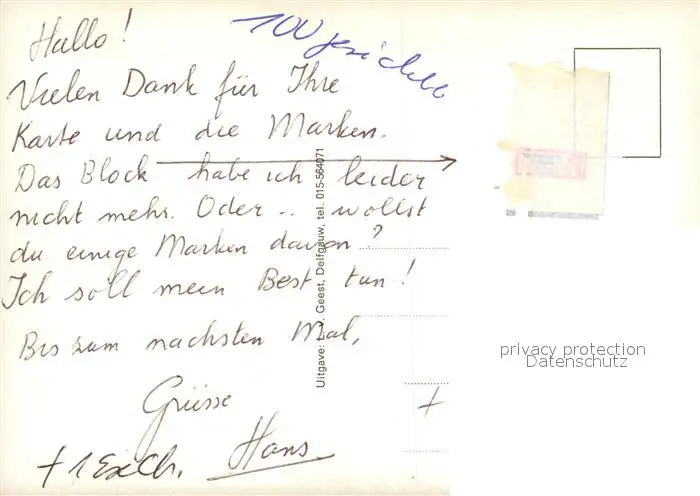 Hallo!
Vielen Dank für Ihre
Karte und die Marken.
Das Block habe ich leider
nicht mehr. Oder .. wollst
du einige Marken davon?
Ich soll mein Best tun!
Bis zum nachsten Mal,
Grüsse
Hans
+ 1 Esch.
+
100
Uitgave: Geest, Delfgauw, tel. 015-564071
privacy protection
Datenschutz